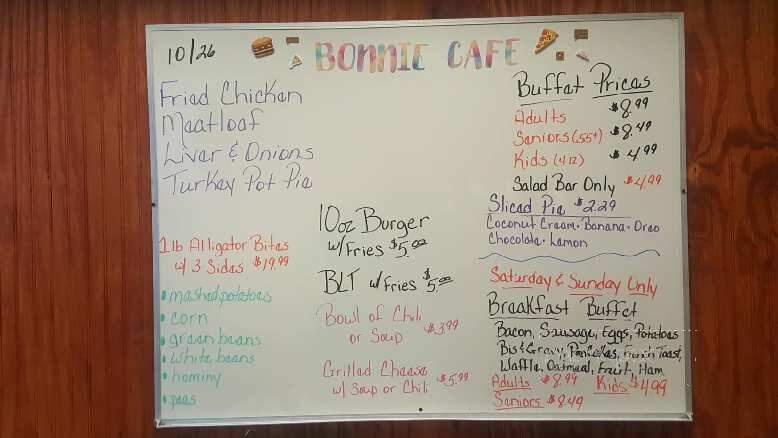 10/26
BONNIE CAFE
Fried Chicken
Meatloaf
Liver & Onions
Turkey Pot Pie
1lb Alligator Bites
w/ 3 Sides $19.99
• mashed potatoes
• corn
• green beans
• white beans
• hominy
• peas
10oz Burger
w/ Fries $5.00
BLT w/ Fries $5.00
Bowl of Chili
or Soup $3.99
Grilled Cheese
w/ Soup or Chili $5.99
Buffet Prices
Adults $8.99
Seniors (55+) $8.49
Kids (4-12) $4.99
Salad Bar Only $4.99
Sliced Pie $2.29
Coconut Cream • Banana • Oreo
Chocolate • Lemon
Saturday & Sunday Only
Breakfast Buffet
Bacon, Sausage, Eggs, Potatoes
Bis & Gravy, Pancakes, French Toast,
Waffle, Oatmeal, Fruit, Ham
Adults $8.99 Kids $4.99
Seniors $8.49